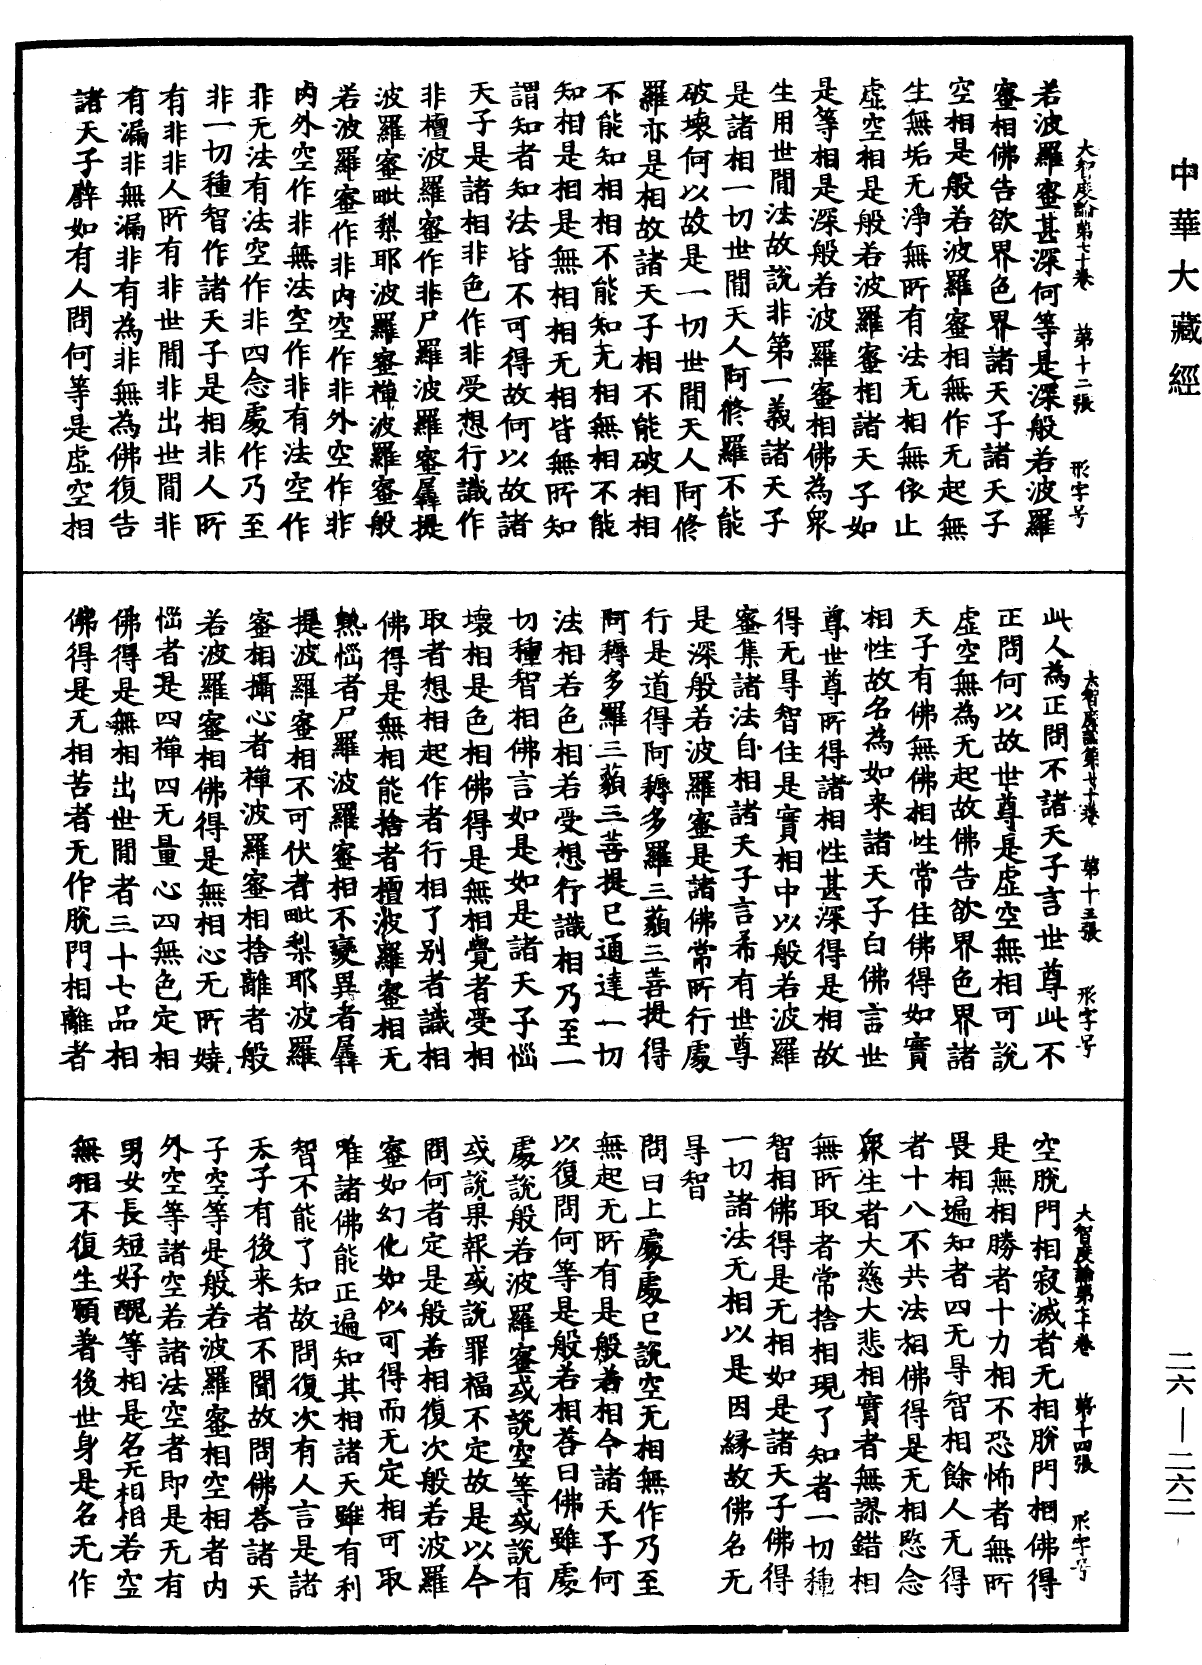 中華大藏經
大智度論第七十卷　第十二張　形字号
若波羅蜜甚深何等是深般若波羅
蜜相佛告欲界色界諸天子諸天子
空相是般若波羅蜜相無作无起無
生無垢无淨無所有法无相無依止
虛空相是般若波羅蜜相諸天子如
是等相是深般若波羅蜜相佛為眾
生用世間法故說非第一義諸天子
是諸相一切世間天人阿修羅不能
破壞何以故是一切世間天人阿修
羅亦是相故諸天子相不能破相相
不能知相相不能知无相無相不能
知相是相是無相相无相皆無所知
謂知者知法皆不可得故何以故諸
天子是諸相非色作非受想行識作
非檀波羅蜜作非尸羅波羅蜜羼提
波羅蜜毗梨耶波羅蜜禪波羅蜜般
若波羅蜜作非內空作非外空作非
內外空作非無法空作非有法空作
非无法有法空作非四念處作乃至
非一切種智作諸天子是相非人所
有非非人所有非世間非出世間非
有漏非無漏非有為非無為佛復告
諸天子辟如有人問何等是虛空相
大智度論第七十卷　第十三張　形字号
此人為正問不諸天子言世尊此不
正問何以故世尊是虛空無相可說
虛空無為无起故佛告欲界色界諸
天子有佛無佛相性常住佛得如實
相性故名為如来諸天子白佛言世
尊世尊所得諸相性甚深得是相故
得无㝵智住是實相中以般若波羅
蜜集諸法自相諸天子言希有世尊
是深般若波羅蜜是諸佛常所行處
行是道得阿耨多羅三藐三菩提得
阿耨多羅三藐三菩提已通達一切
法相若色相若受想行識相乃至一
切種智相佛言如是如是諸天子惱
壞相是色相佛得是無相覺者受相
取者想相起作者行相了別者識相
佛得是無相能捨者檀波羅蜜相无
熱惱者尸羅波羅蜜相不變異者羼
提波羅蜜相不可伏者毗梨耶波羅
蜜相攝心者禪波羅蜜相捨離者般
若波羅蜜相佛得是無相心无所嬈
惱者是四禪四无量心四無色定相
佛得是無相出世間者三十七品相
佛得是无相苦者无作脫門相離者
大智度論第七十卷　第十四張　形字号
空脫門相寂滅者无相脫門相佛得
是無相勝者十力相不恐怖者無所
畏相遍知者四无㝵智相餘人无得
者十八不共法相佛得是无相愍念
眾生者大慈大悲相實者無謬錯相
無所取者常捨相現了知者一切種
智相佛得是无相如是諸天子佛得
一切諸法无相以是因緣故佛名无
㝵智
問曰上處處已說空无相無作乃至
無起无所有是般若相今諸天子何
以復問何等是般若相荅曰佛雖處
處說般若波羅蜜或說空等或說有
或說果報或說罪福不定故是以今
問何者定是般若相復次般若波羅
蜜如幻化如似可得而无定相可取
唯諸佛能正遍知其相諸天雖有利
智不能了知故問復次有人言是諸
天子有後来者不聞故問佛荅諸天
子空等是般若波羅蜜相空相者內
外空等諸空若諸法空者即是无有
男女長短好醜等相是名无相相若空
無相不復生願著後世身是名无作
二六—二六二